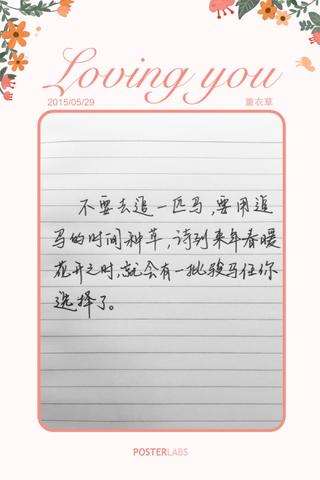 Loving you
2015/05/29 薰衣草
不要去追一匹马,要用追
马的时间种草,待到来年春暖
花开之时,就会有一批骏马任你
选择了。
POSTERLABS